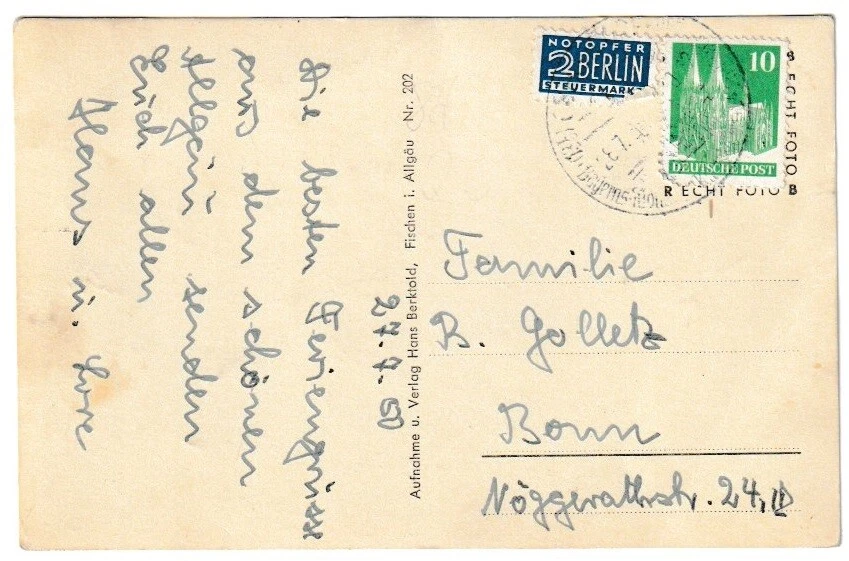 27.7.50
Die besten Feriengrüsse
aus dem schönen
Allgäu senden
Euch allen
Hans u. Lore
Aufnahme u. Verlag Hans Berktold, Fischen i. Allgäu Nr. 202
NOTOPFER
2 BERLIN
STEUERMARKE
10
DEUTSCHE POST
ECHT FOTO
R ECHT FOTO B
Familie
B. Golletz
Bonn
Nöggerathstr. 24, II